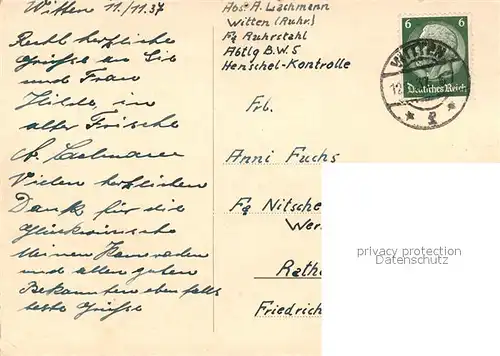 Witten 11./11.37
Recht herzliche
Grüsse an Sie
und Frau
Hilde, in
alter Frische
A. Lachmann
Vielen herzlichen
Dank für die
Glückwünsche
Meinen Kameraden
und allen guten
Bekannten ebenfalls
beste Grüsse
Abs. A. Lachmann
Witten (Ruhr)
Fa Ruhrstahl
Abtlg B.W.5
Henschel-Kontrolle
6 6
Deutsches Reich
WITTEN
12
Frl.
Anni Fuchs
Fa Nitsche
Wer
Rathe
Friedrich
privacy protection
Datenschutz